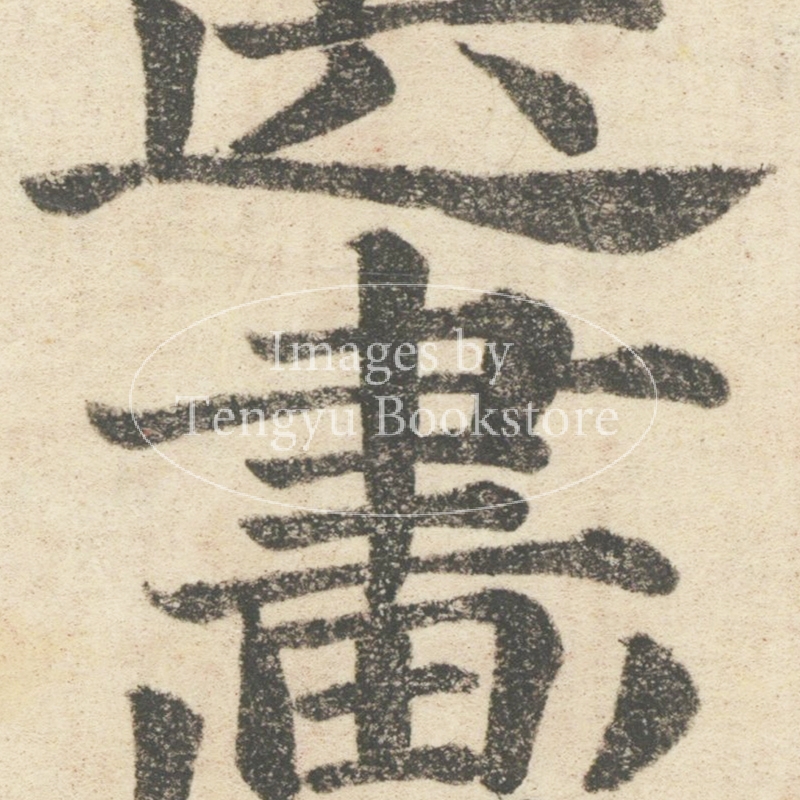 畫
Images by
Tengyu Bookstore